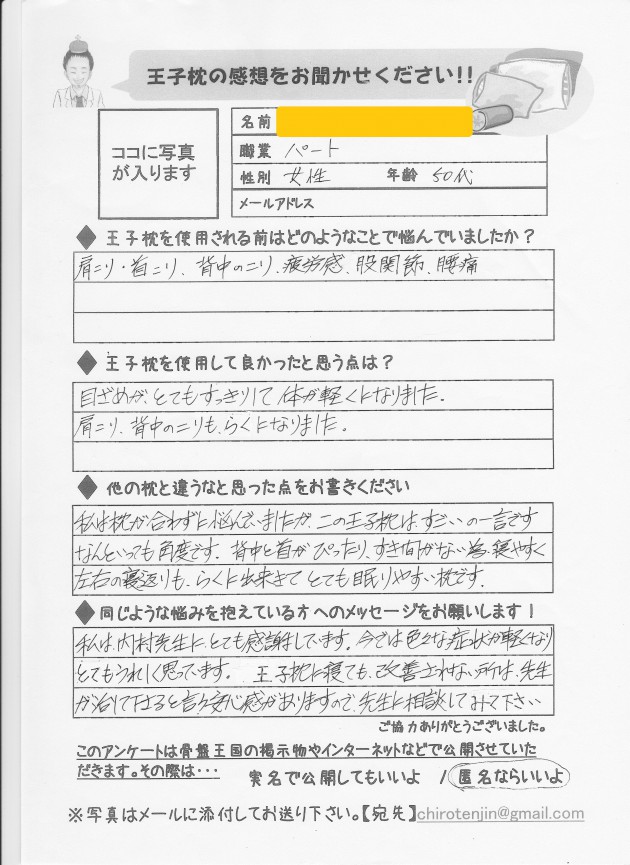 王子枕の感想をお聞かせください!!
ココに写真
が入ります
名前
職業 パート
性別 女性 年齢 50代
メールアドレス
◆ 王子枕を使用される前はどのようなことで悩んでいましたか?
肩こり・首こり、背中のこり、疲労感、股関節、腰痛
◆ 王子枕を使用して良かったと思う点は?
目ざめが、とてもすっきりして体が軽くになりました。
肩こり、背中のこりも、らくになりました。
◆ 他の枕と違うなと思った点をお書きください
私は枕が合わずに悩んでいましたが、この王子枕は、すごいの一言です
なんといっても角度です。背中と首がぴったり、すき間がない為、寝やすく
左右の寝返りも、らくに出来きて とても眠りやすい枕です。
◆ 同じような悩みを抱えている方へのメッセージをお願いします!
私は、内村先生に、とても感謝しています。今では色々な症状が軽くなり
とてもうれしく思っています。 王子枕に寝ても、改善されない所は、先生
が治して下さると言う安心感がありますので、先生に相談してみて下さい
ご協力ありがとうございました。
このアンケートは骨盤王国の掲示物やインターネットなどで公開させていた
だきます。その際は・・・ 実名で公開してもいいよ / 匿名ならいいよ
※写真はメールに添付してお送り下さい。【宛先】chirotenjin@gmail.com